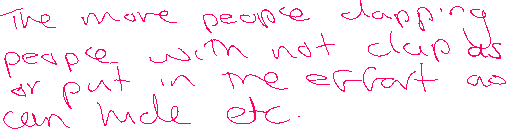 The more people clapping
people with not clap as
or put in the effort as
can hide etc.